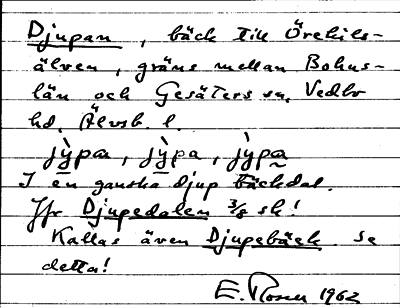 Djupan, bäck till Örekils-
älven, gräns mellan Bohus-
län och Gesäters sn, Vedbo
hd, Älvsb. l.
jỳpan, jỳpa, jỳpa
I en ganska djup bäckdal.
Jfr Djupedalen 3/8 sk!
Kallas även Djupebäck. Se
detta!
E. Rosen 1962